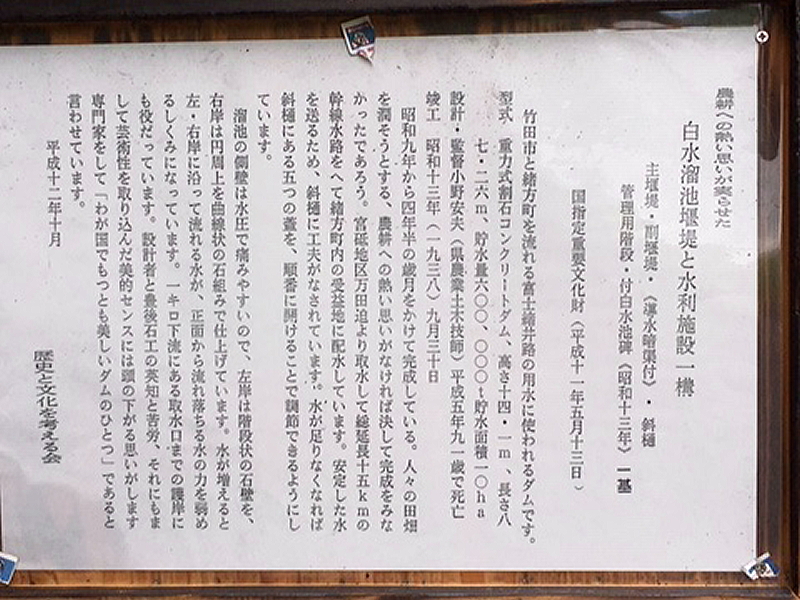 農耕への熱い思いが実らせた
白水溜池堰堤と水利施設一構
主堰堤・副堰堤・《導水暗渠付》・斜樋
管理用階段・付白水池碑《昭和十三年》一基
国指定重要文化財（平成十一年五月十三日）
竹田市と緒方町を流れる富士緒井路の用水に使われるダムです。
型式　重力式割石コンクリートダム、高さ十四・一ｍ、長さ八
七・二六ｍ、貯水量六〇〇、〇〇〇ｔ貯水面積一〇ｈａ
設計・監督小野安夫（県農業土木技師）平成五年九一歳で死亡
竣工　昭和十三年（一九三八）九月三十日
昭和九年から四年半の歳月をかけて完成している。人々の田畑
を潤そうとする、農耕への熱い思いがなければ決して完成をみな
かったであろう。宮砥地区万田迫より取水して総延長十五ｋｍの
幹線水路をへて緒方町内の受益地に配水しています。安定した水
を送るため、斜樋に工夫がなされています。水が足りなくなれば
斜樋にある五つの蓋を、順番に開けることで調節できるようにし
ています。
溜池の側壁は水圧で痛みやすいので、左岸は階段状の石壁を、
右岸は円周上を曲線状の石組みで仕上げています。水が増えると
左・右岸に沿って流れる水が、正面から流れ落ちる水の力を弱め
るしくみになっています。一キロ下流にある取水口までの護岸に
も役だっています。設計者と豊後石工の英知と苦労、それにもま
して芸術性を取り込んだ美的センスには頭の下がる思いがします
専門家をして「わが国でもつとも美しいダムのひとつ」であると
言わせています。
平成十二年十月
歴史と文化を考える会